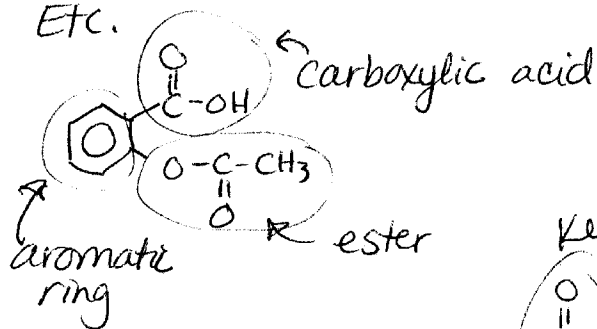 Etc.
O
carboxylic acid
C-OH
O-C-CH3
O
ester
aromatic
ring
Ke
O